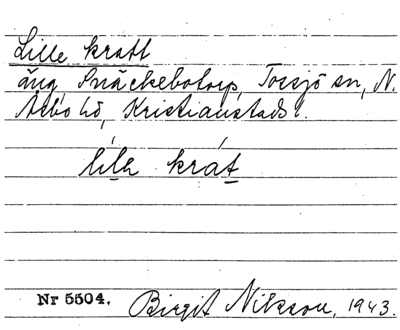 Lille kratt
äng Snäckebotorp, Torsjö sn, N.
Åsbo hd, Kristianstads l.
lílə krát
Nr 5504. Birgit Nilsson, 1943.